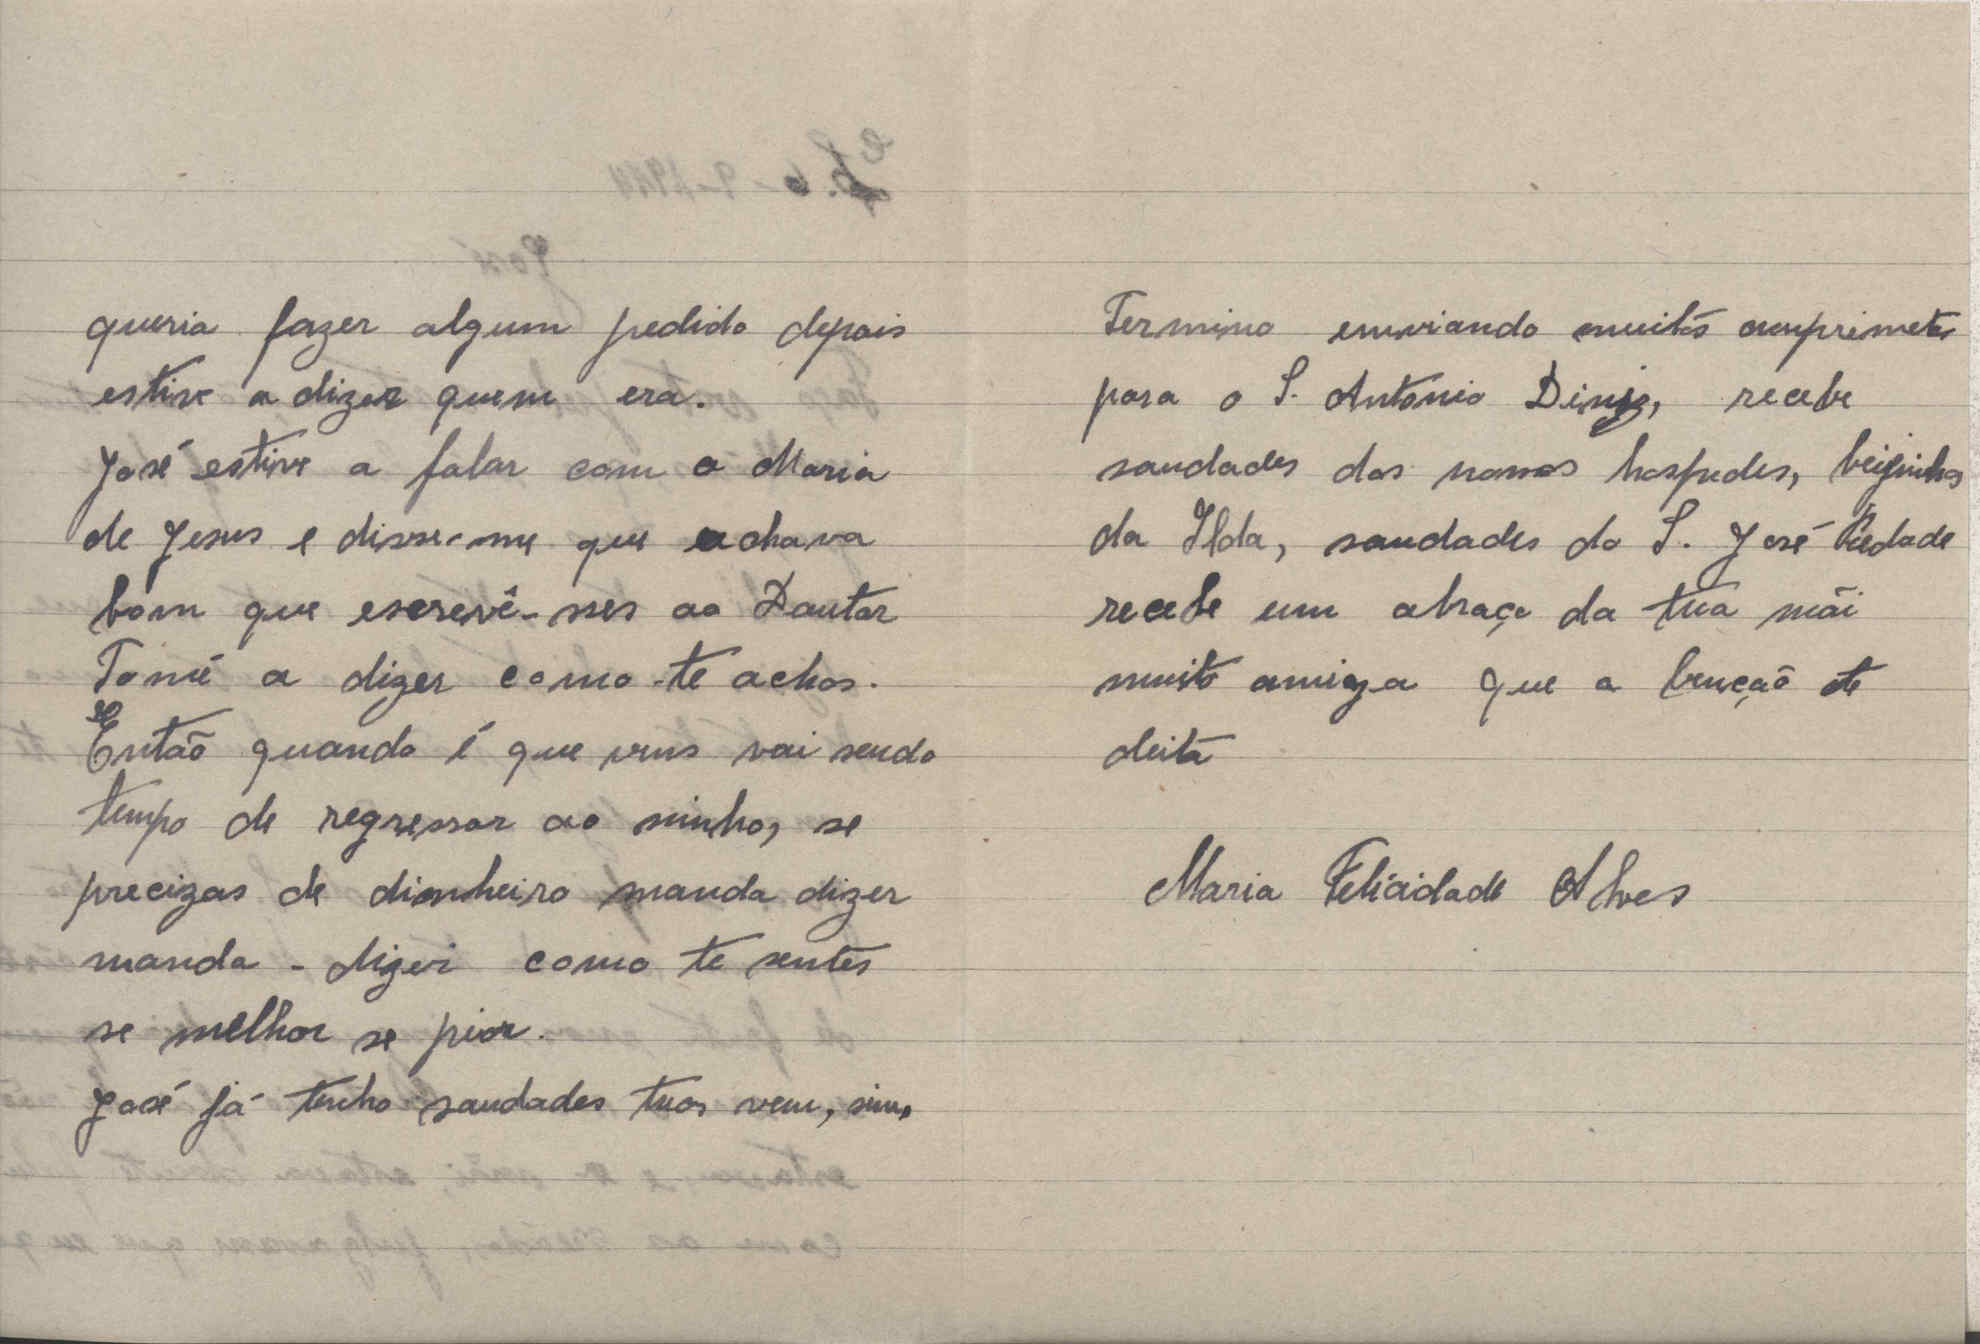 queria fazer algum pedido depois
estive a dizer quem era.
José estive a falar com a Maria
de Jesus e disse-me que achava
bom que escrevê-sses ao Doutor
Tomé a dizer como-te achas.
Então quando é que vens vai sendo
tempo de regressar ao ninho, se
precizas de dinheiro manda dizer
manda-dizer como te sentes
se melhor se pior.
José já tenho saudades tuas vem, sim.
Termino enviando muitos cumprimetos
para o S. Antonio Diniz, recebe
saudades dos nossos hospedes, beijinhos
da Ilda, saudades do S. José Piedade
recebe um abraço da tua mãi
muito amiga que a benção te
deita
Maria Felicidade Alves